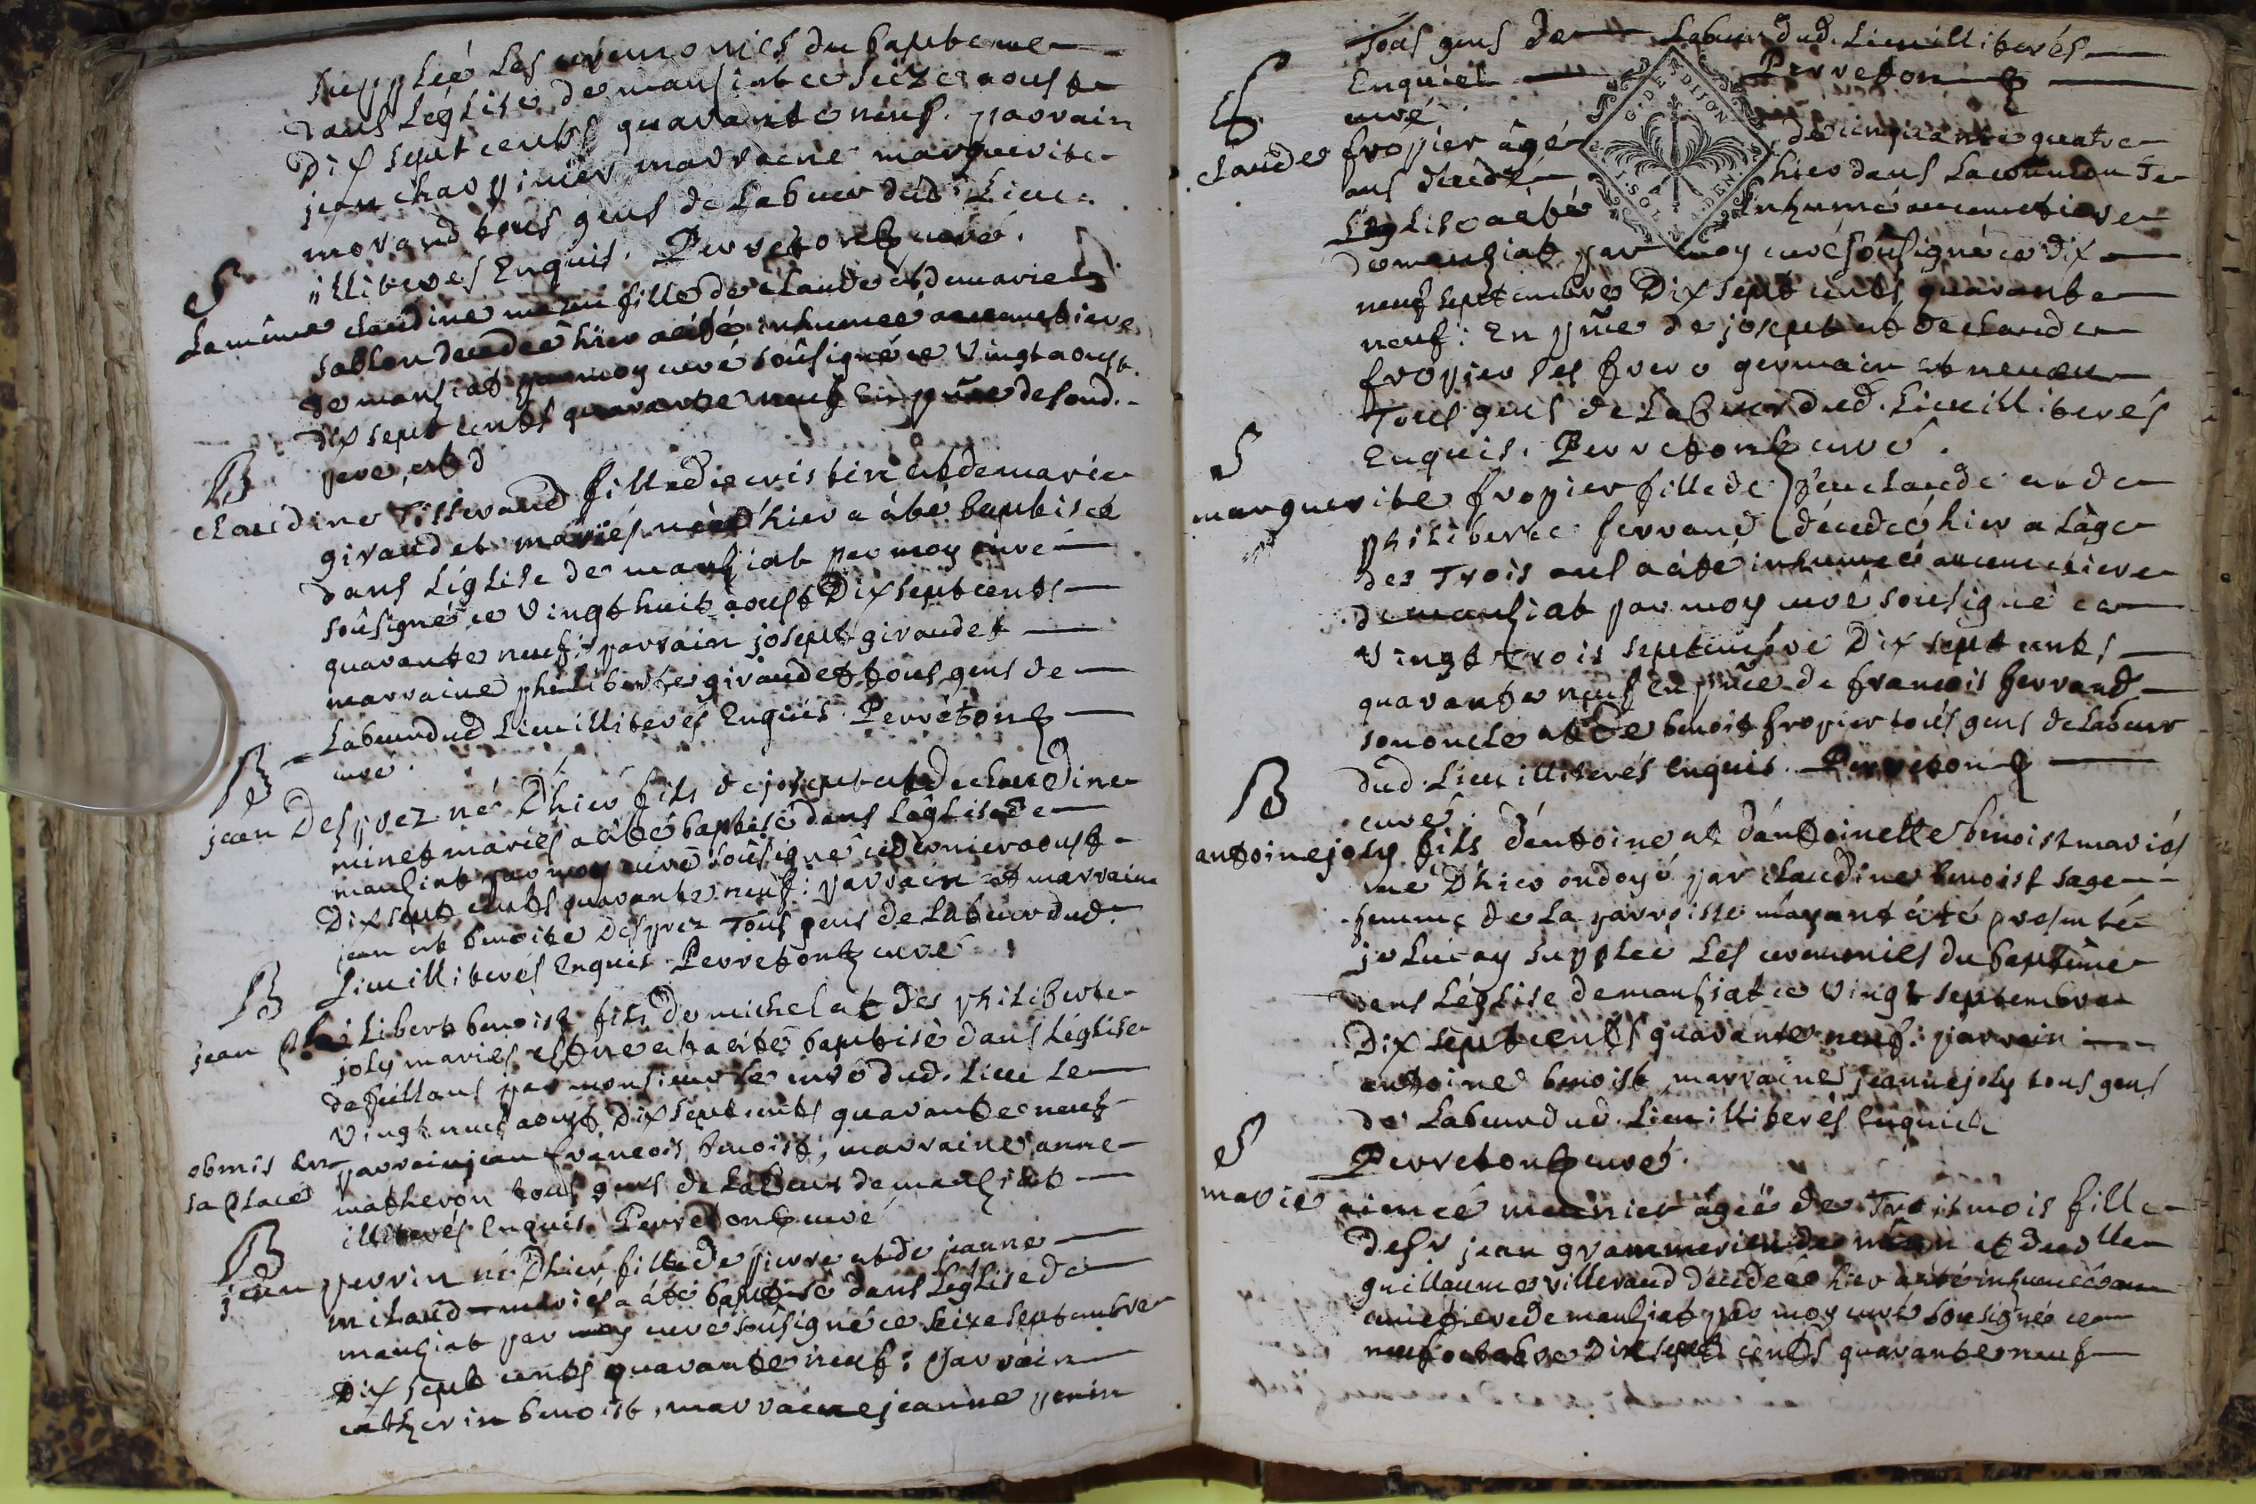 suppleé les ceremonies du bapteme
dans Leglise de manziat ce seize aoust
Dix sept cents quarante neuf. parrain
jean charpinier marraine marguerite
morand tous gens de Labeur dud. Lieu
illiteres Enquis. Perreton curé.
S
La mème claudine mezui fille de claude et de marie
sablon decedeé hier a été inhumeé au cimetiere
de manziat par moy curé soûsigné ce vingt aoust
dix sept cents quarante neuf En pnce de son d.
pere et d
B
claudine Tisserand fille de cristin et de marie
giraudet mariés neé d'hier a àté baptiseé
dans Léglise de manziat par moy curé
soûsigné ce vingt huit aoust Dix sept cents
quarante neuf: parrain josept giraudet
marraine philiberte giraudet tous gens de
Labeur dud Lieu illiterés Enquis. Perreton
curé.
B
jean Desprez né D'hier fils de josept et de claudine
minet mariés a àté baptisé dans Lêglise de
manziat par moy curé soûsigné ce dernier aoust
Dix sept cents quarante neuf: parrain et marraine
jean et benoite Desprez Tous gens de Labeur dud.
Lieu illiterés Enquis Perreton curé
B
jean philibert benoist fils de michel et des philiberte
joly mariés est né et a été baptisé dans Léglise
de fillans par monsieur le curé dud. Lieu le
vingt neuf aoust Dix sept cents quarante neuf
obmis en
sa place
parrain jean francois benoist, marraine anne
matheron tous gens de Labeur de manziat
illiterés Enquis Perreton curé
B
jean perrin né D'hier fille de pierre et de jeanne
milaud mariés a àté baptisé dans Leglise de
manziat par moy curé soûsigné ce seize septembre
Dix sept cents quarante neuf: parrain
catherin benoist, marraine jeanne perrin
Tous gens de Labeur dud. Lieu illiterés
Enquis Perreton
curé
G. DE DIJON
S
claude fropier âgé de cinquante quatre
ans decedé hier dans La commun de
Leglise a été inhumé au cimetiere
de manziat par moy curé soûsigné ce dix
neuf septembre Dix sept cents quarante
neuf: En pnce de josept et de claude
fropier ses frere germain et neveu
Tous gens de Labeur dud. Lieu illiterés
Enquis. Perreton curé.
S
marguerite fropier fille de feu claude et de
philiberte ferrand décedeé hier a Lâge
des Trois ans a été inhumeé au cimetiere
de manziat par moy curé sousigné ce
vingt Trois septembre Dix sept cents
quarante neuf En pnce de francois ferrand
son oncle et de benoit fropier tous gens de Labeur
dud. Lieu illiterés Enquis. Perreton
curé.
B
antoine joly fils d'entoine et d'antoinette benoist mariés
né D'hier ondoyé par claudine benoist sage
femme de La parroisse m'ayant été presenté
je Lui ay suppleé Les ceremonies du baptême
dans Léglise de manziat ce vingt septembre
Dix sept cents quarante neuf: parrain
antoine benoist marraine jeanne joly tous gens
de Labeur dud. Lieu illiterés Enquis
Perreton curé.
S
marie aimeé meunier âgeé de Trois mois fille
de sr jean grammerien de et de dlle
guillaume villerand décedeé hier a été inhumeé au
cimetiere de manziat par moy curé sousigné ce
neuf octobre Dix sept cents quarante neuf